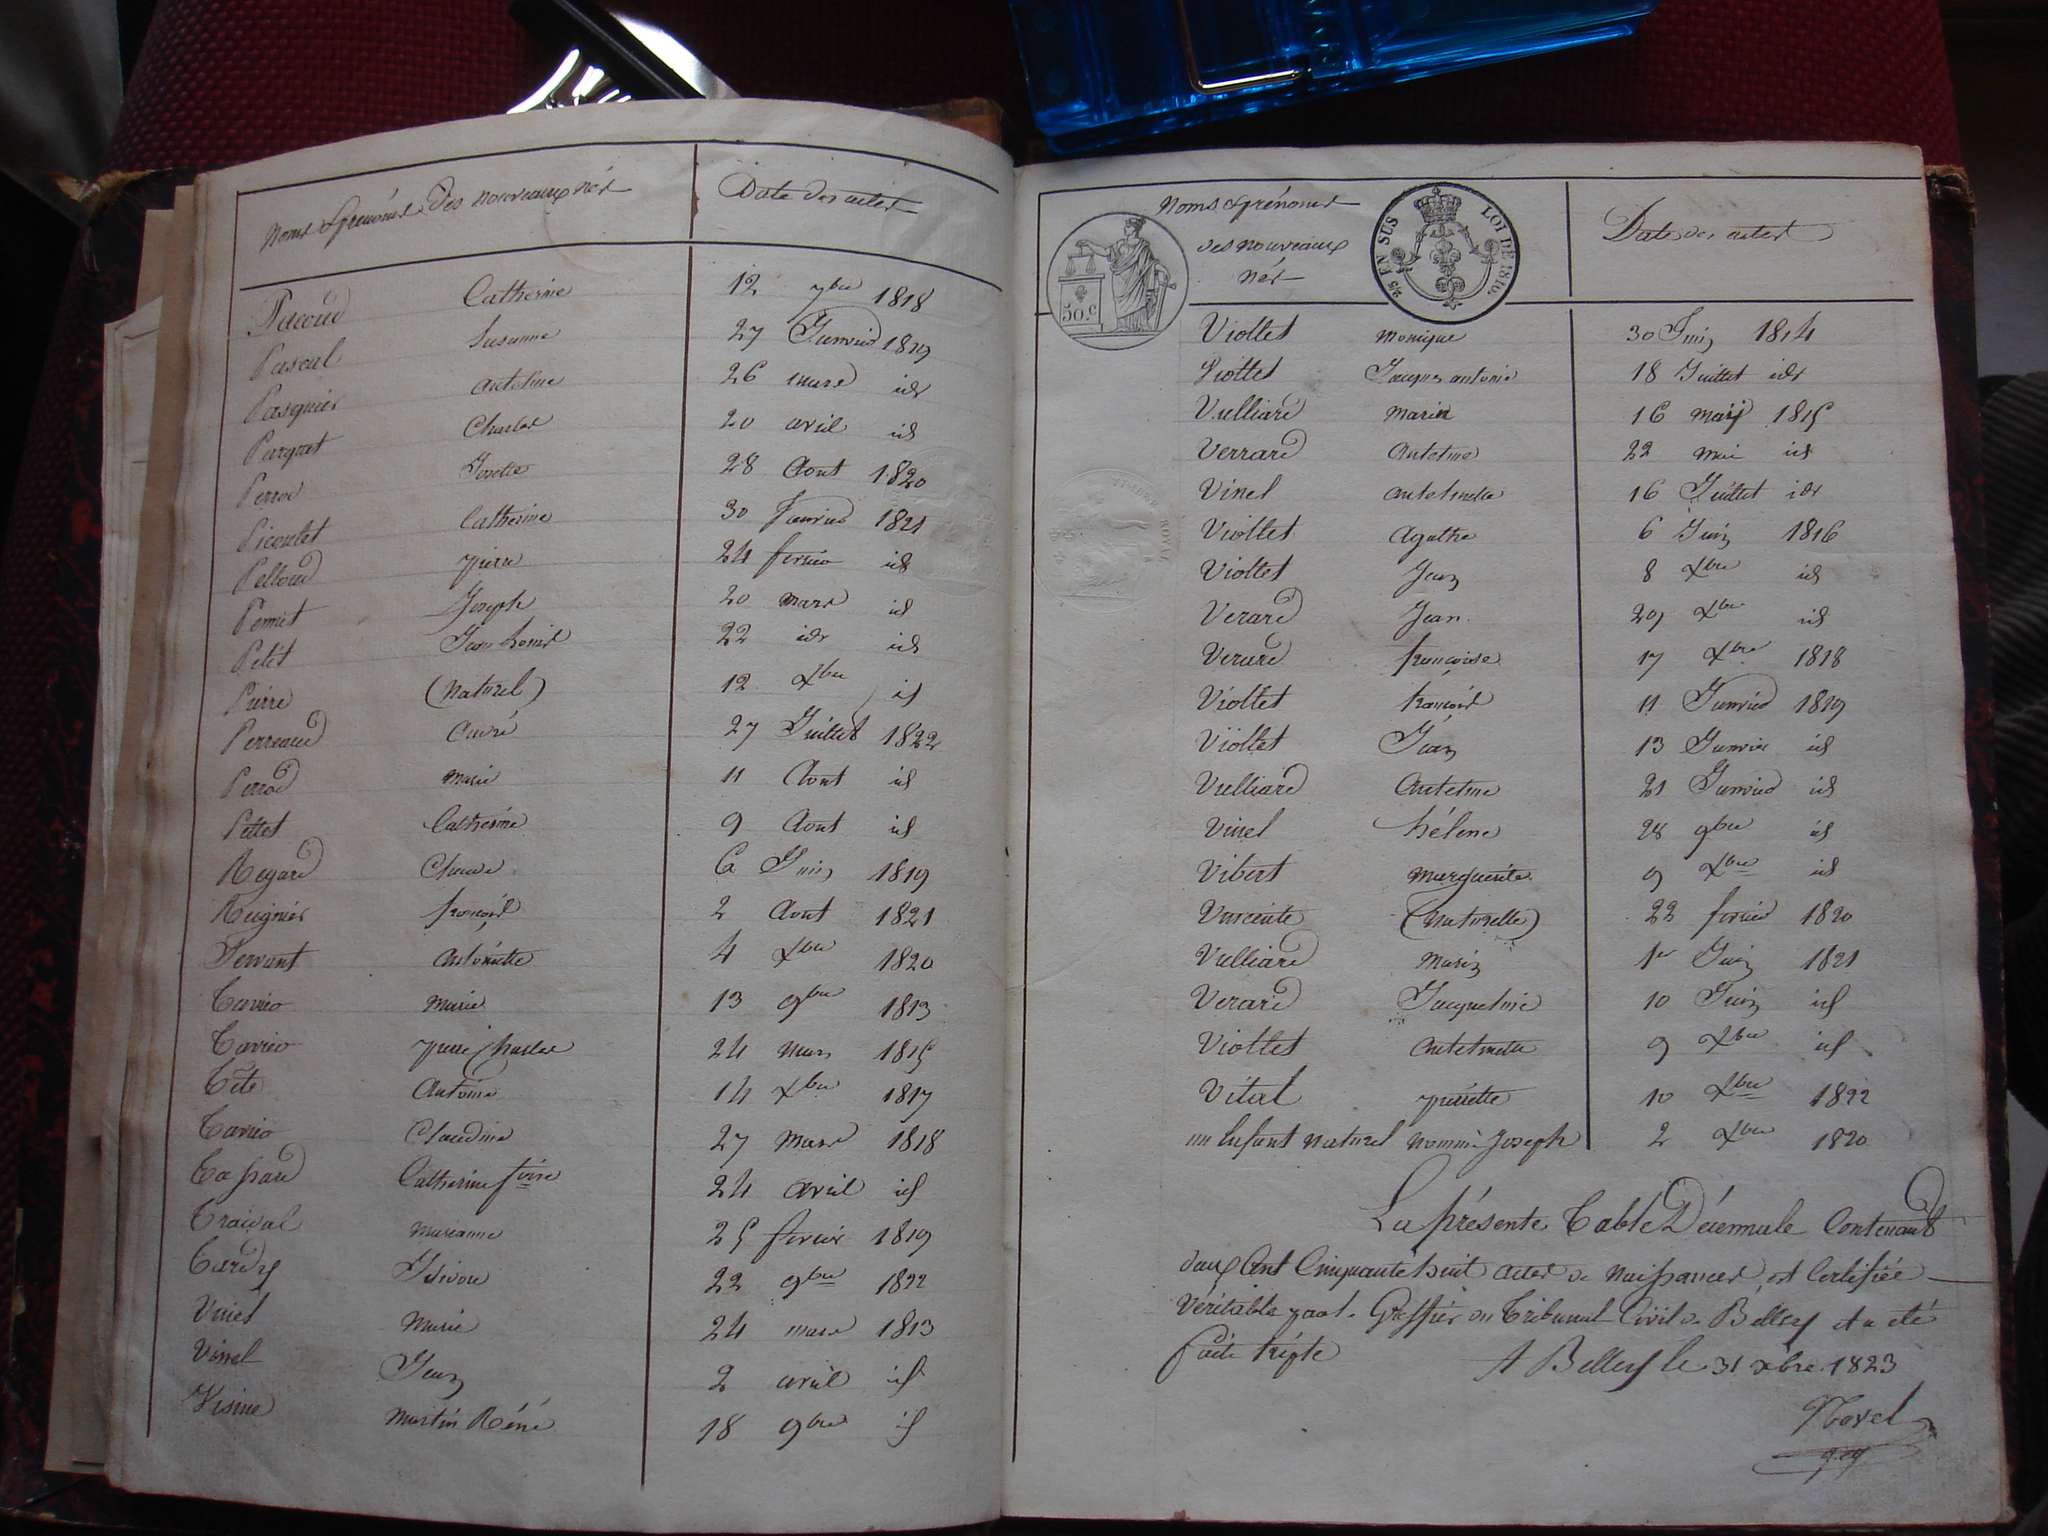 Noms & prénoms des nouveaux nés Date des actes
Pacoud Catherine 12 7bre 1818
Pascal Susanne 27 Janvier 1819
Pasquier Antelme 26 mars idr
Parquet Charles 20 avril id
Perrod Josette 28 Aout 1820
Picoulet Catherine 30 Janvier 1821
Pelloud pierre 24 fevrier id
Pernet Joseph 20 mars id
Petit Jean Louis 22 idr id
Pierre (Naturel) 12 Xbre id
Perreaud André 27 Juillet 1822
Perrod marie 11 Aout id
Pettet Catherine 9 Aout id
Regard Claude 6 Juin 1819
Reignier françois 2 Aout 1821
Servant Antoinette 4 Xbre 1820
Tavrio Marie 13 9bre 1813
Tavrio pierre Charles 24 Mars 1815
Tete Antoine 14 Xbre 1817
Tavrio Claudine 27 Mars 1818
Tassard Catherine 24 avril id
Traival Marianne 25 fevrier 1819
Tardy Isidore 22 9bre 1822
Vinel Marie 24 mars 1813
Vinel Jean 2 avril id
Visine Martin Réné 18 9bre id
Noms & prénoms
des nouveaux
nés
Date des actes
50.c
2/5 EN SUS LOI DE 1816.
TIMBRE ROYAL
Viollet monique 30 Juin 1814
Viollet Jacques antoine 18 Juillet idr
Vulliard Marin 16 1815
Verrard Antelme 22 mai id
Vinel Antelmette 16 Juillet idr
Viollet Agathe 6 Juin 1816
Viollet Jean 8 Xbre id
Verard Jean 29 Xbre id
Verard françoise 17 Xbre 1818
Viollet françois 11 Janvier 1819
Viollet Jean 13 Janvier id
Vulliard Antelme 21 Janvier id
Vinel hélene 28 9bre id
Vibert Marguerite 9 Xbre id
Vincente (Naturelle) 22 fevrier 1820
Vulliard Marin 1er Juin 1821
Verard Jacqueline 10 Juin id
Viollet Antelmette 9 Xbre id
Vital pierrette 10 Xbre 1822
un Enfant Naturel Nommé Joseph 2 Xbre 1820
La présente Table Décennale Contenant
deux Cent Cinquante huit actes de Naissances est Certifiée
Véritable par le Greffier du Tribunal Civil de Belley et a été
faite triple
A Belley le 31 xbre 1823